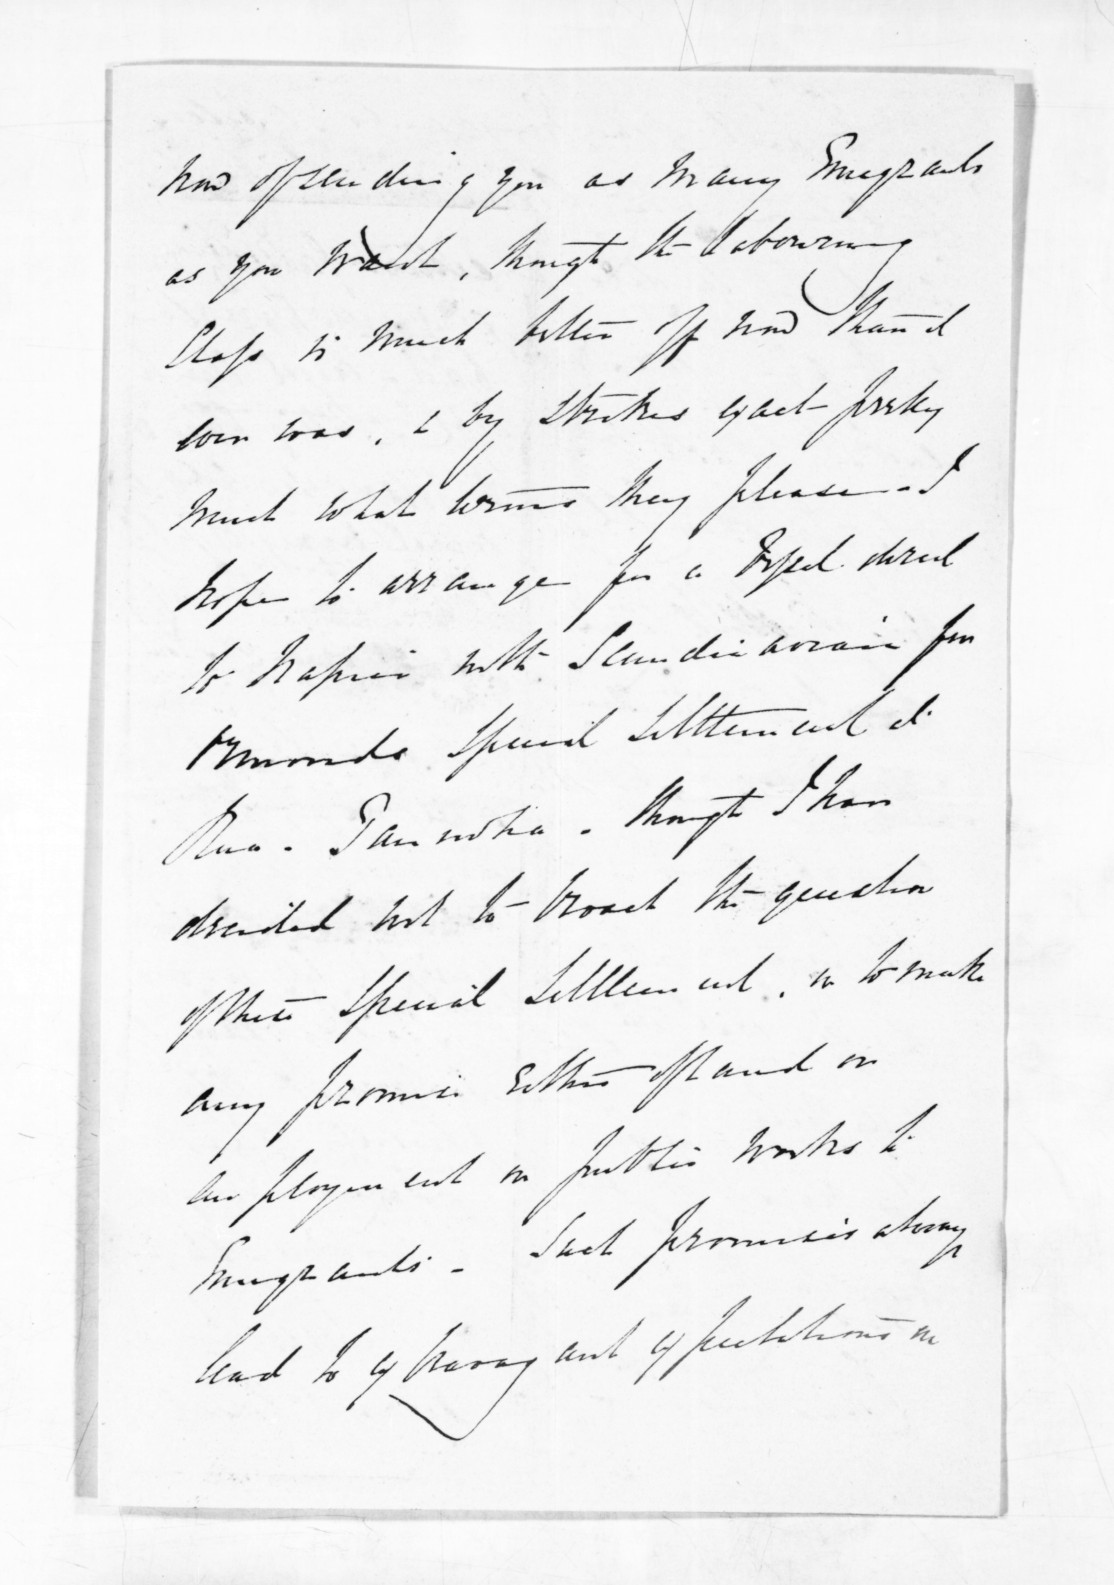 now of sending you as many Emigrants
as you want, though the labouring
Class is much better off now than it
ever was, & by strikes exact pretty
much what terms they please - I
hope to arrange for a vessel direct
to Napier with Scandinavians for
Ormonds Special Settlement at
Rua - Taniwha - though I have
decided not to broach the question
of these Special Settlement, or to make
any promise either of land or
employment on public works to
Emigrants - Such promises always
lead to extravagant expectations on